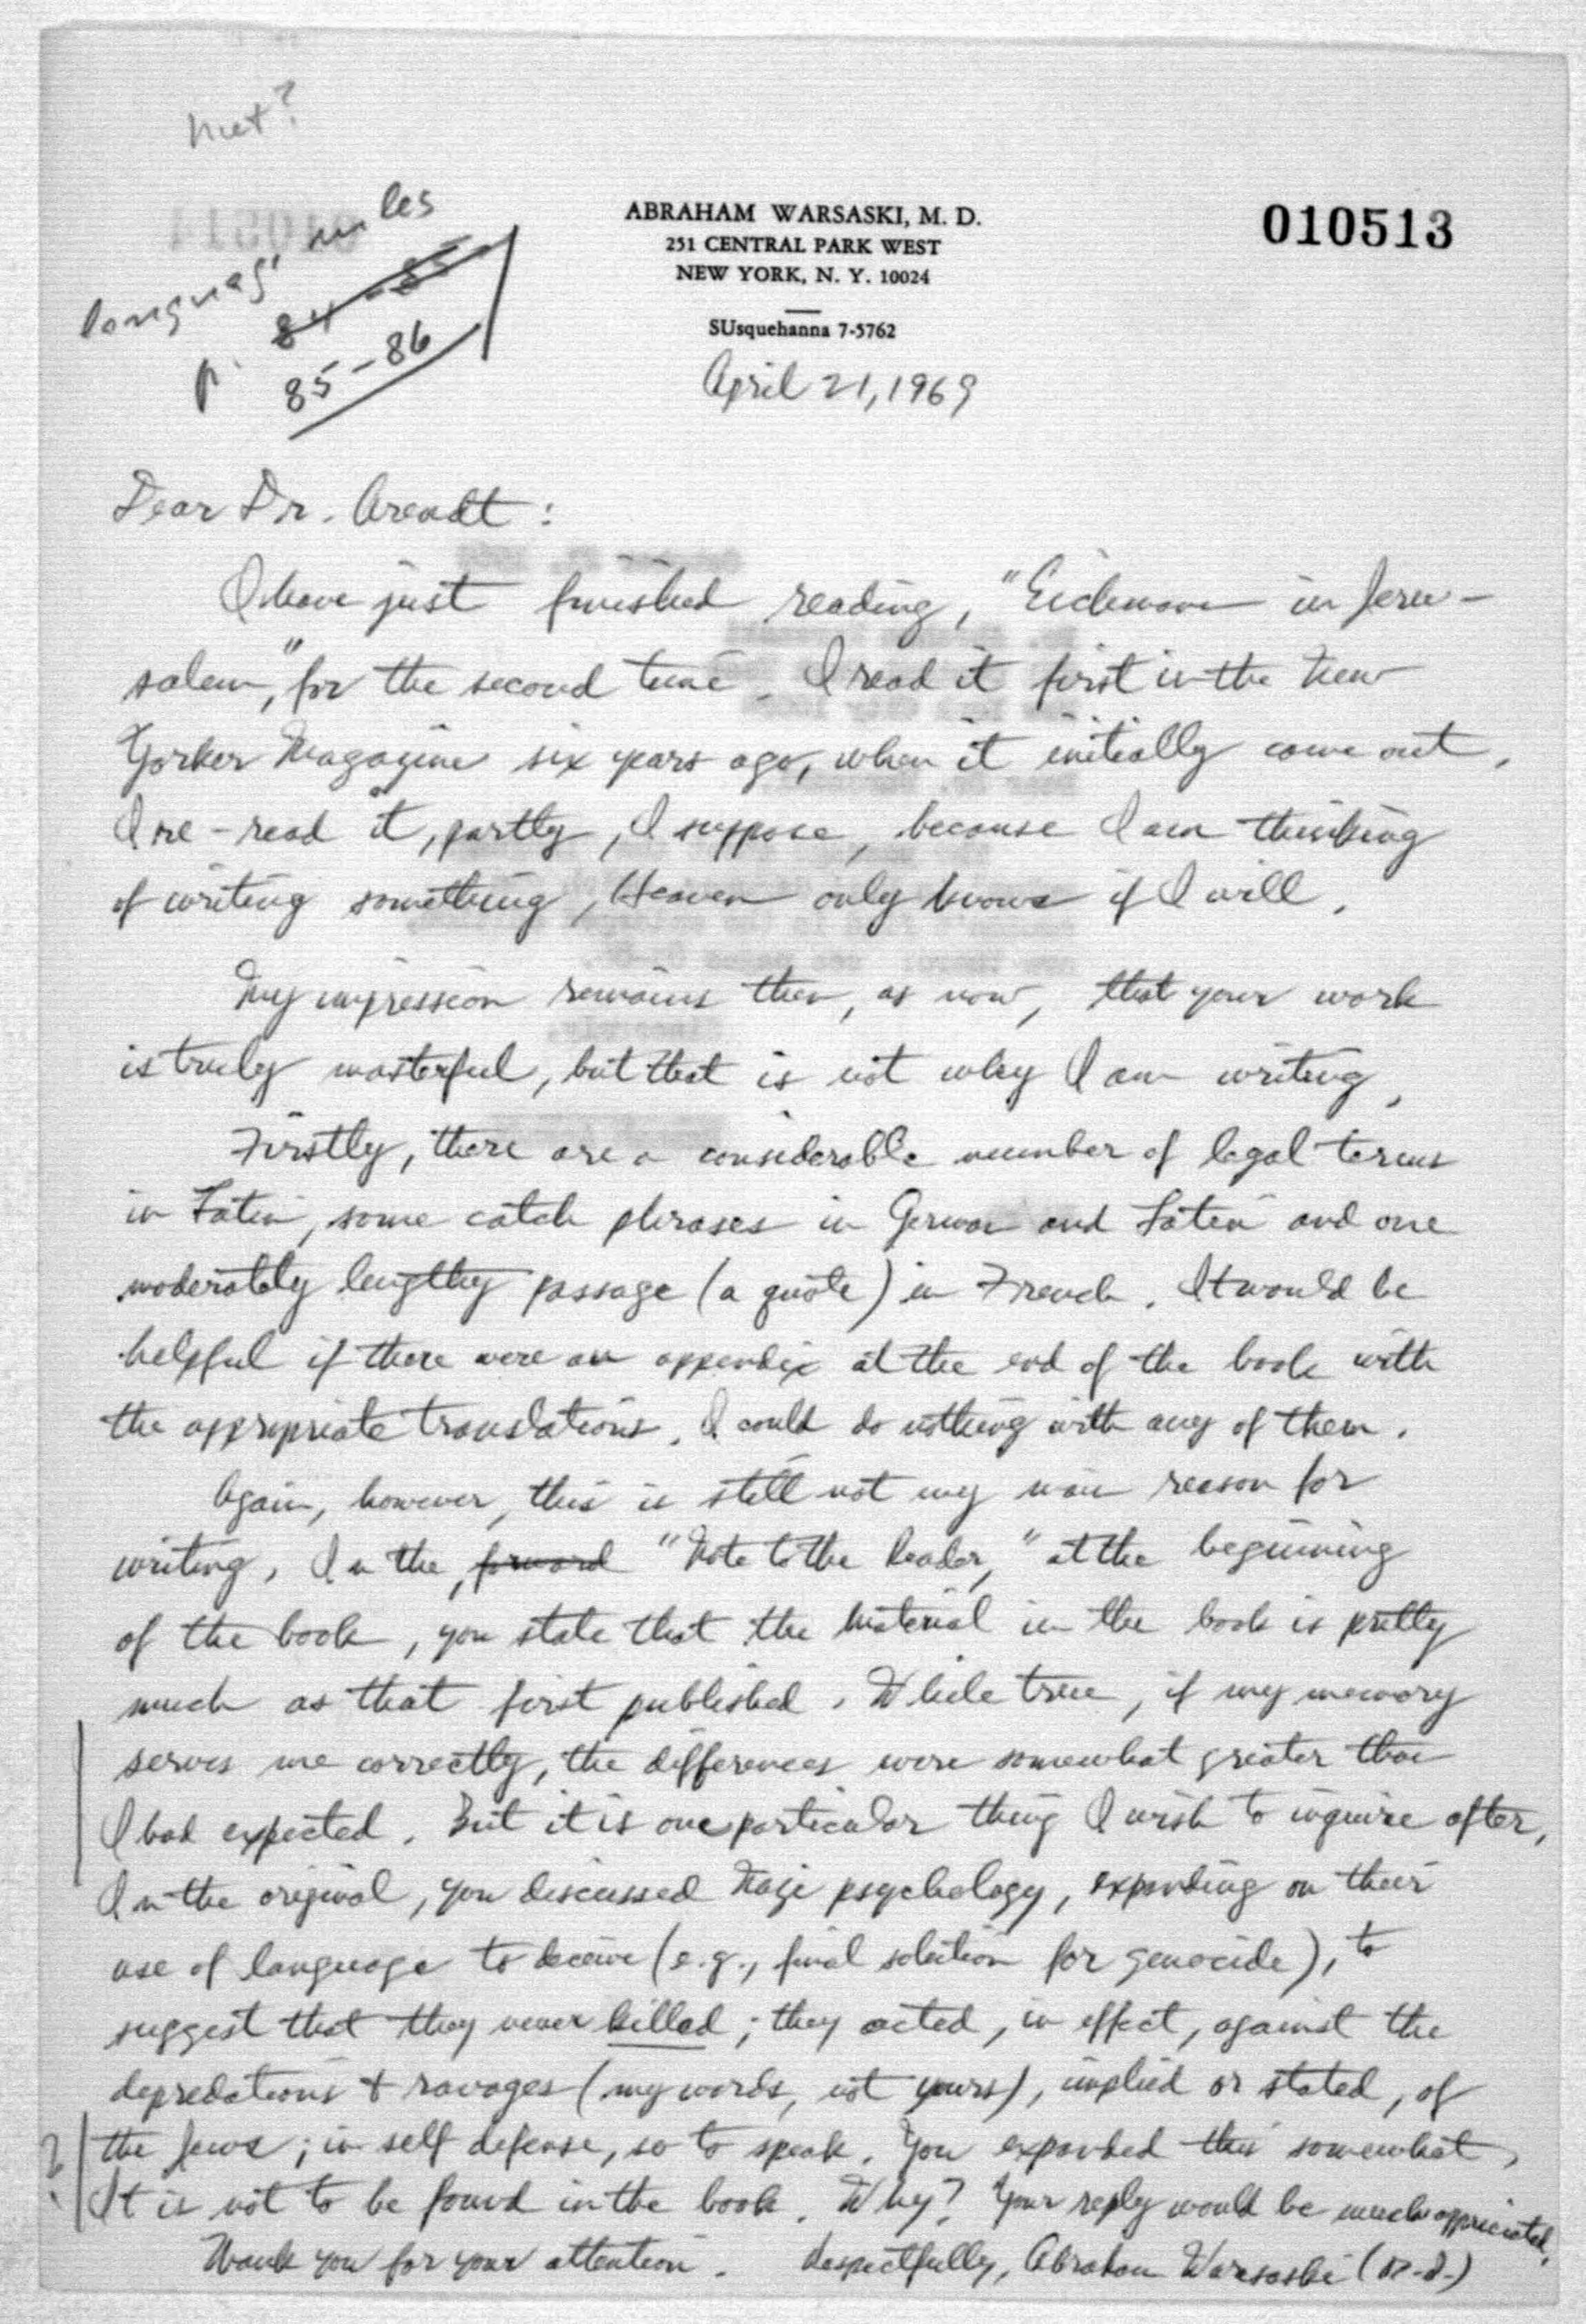 ABRAHAM WARSASKI, M. D.
251 CENTRAL PARK WEST
NEW YORK, N. Y. 10024
SUsquehanna 7-5762
010513
les
p. 84-85
85-86
April 21, 1969
Dear Dr. Arendt:
I have just finished reading, "Eichmann in Jeru-
salem," for the second time. I read it first in the New
Yorker Magazine six years ago, when it initially came out.
I re-read it, partly, I suppose, because I am thinking
of writing something, Heaven only knows if I will.
My impression remains then, as now, that your work
is truly masterful, but that is not why I am writing.
Firstly, there are a considerable number of legal terms
in Latin, some catch phrases in German and Latin and one
moderately lengthy passage (a quote) in French. It would be
helpful if there were an appendix at the end of the book with
the appropriate translations. I could do nothing with any of them.
Again, however, this is still not my main reason for
writing. In the, forward "Note to the Reader," at the beginning
of the book, you state that the material in the book is pretty
much as that first published. While true, if my memory
serves me correctly, the differences were somewhat greater than
I had expected. But it is one particular thing I wish to inquire after.
In the original, you discussed Nazi psychology, expanding on their
use of language to deceive (e.g., final solution for genocide), to
suggest that they never killed; they acted, in effect, against the
depredations + ravages (my words, not yours), implied or stated, of
? the Jews; in self defense, so to speak. You expanded this somewhat.
It is not to be found in the book. Why? Your reply would be much appreciated.
Thank you for your attention. Respectfully, Abraham Warsaski (M.D.)